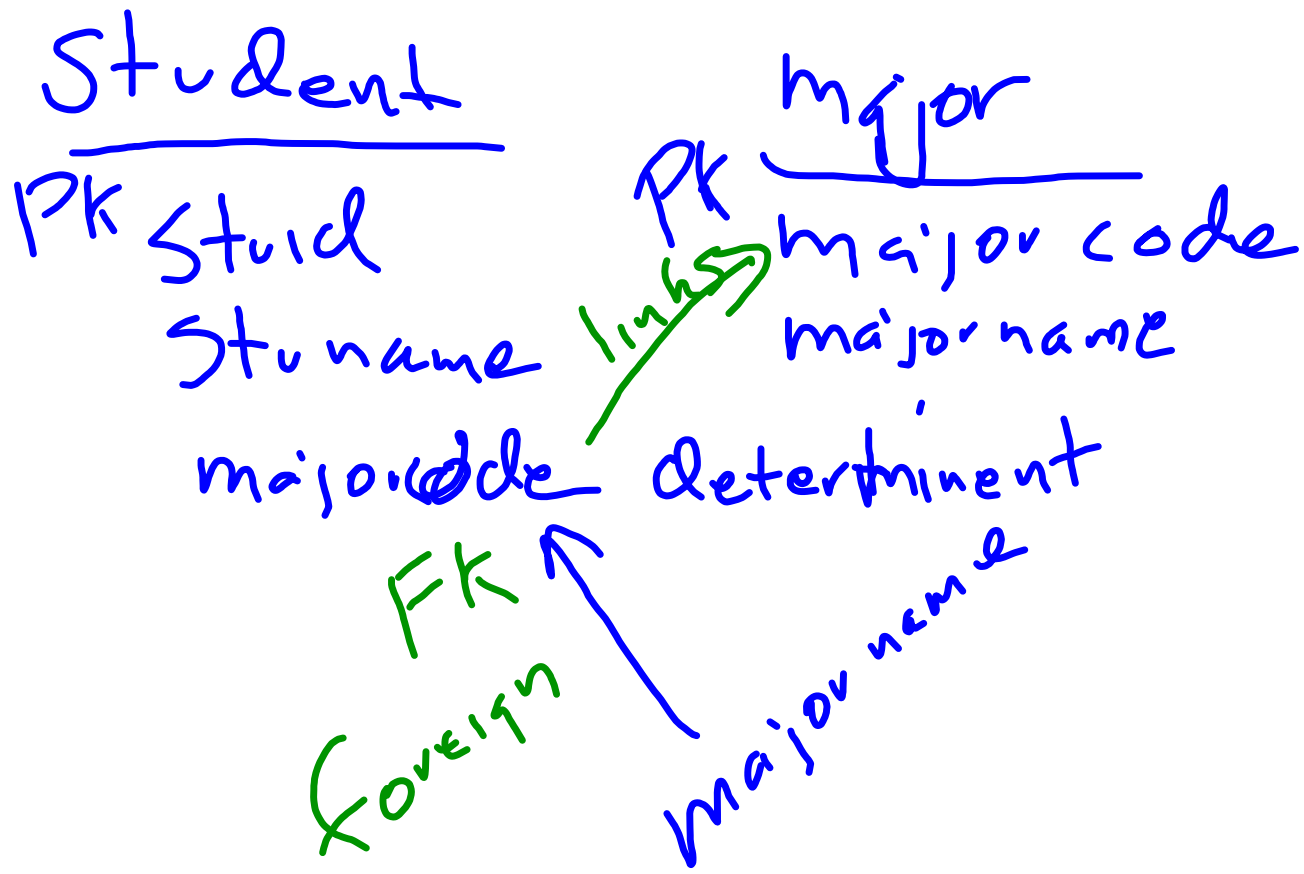 Student
PK
Stuid
Stuname
majorcode
FK
foreign
links
major
PK
major code
majorname
determinent
major name